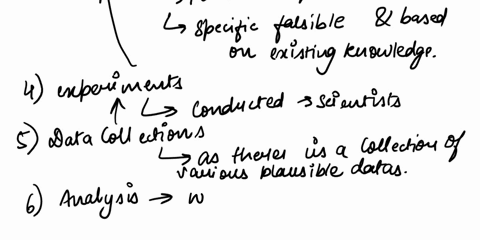 ↳ specific falsible & based
on existing knowledge.
4) experiments
↳ conducted → scientists
5) Data collections
↳ as theres is a collection of
various plausible datas.
6) Analysis → w